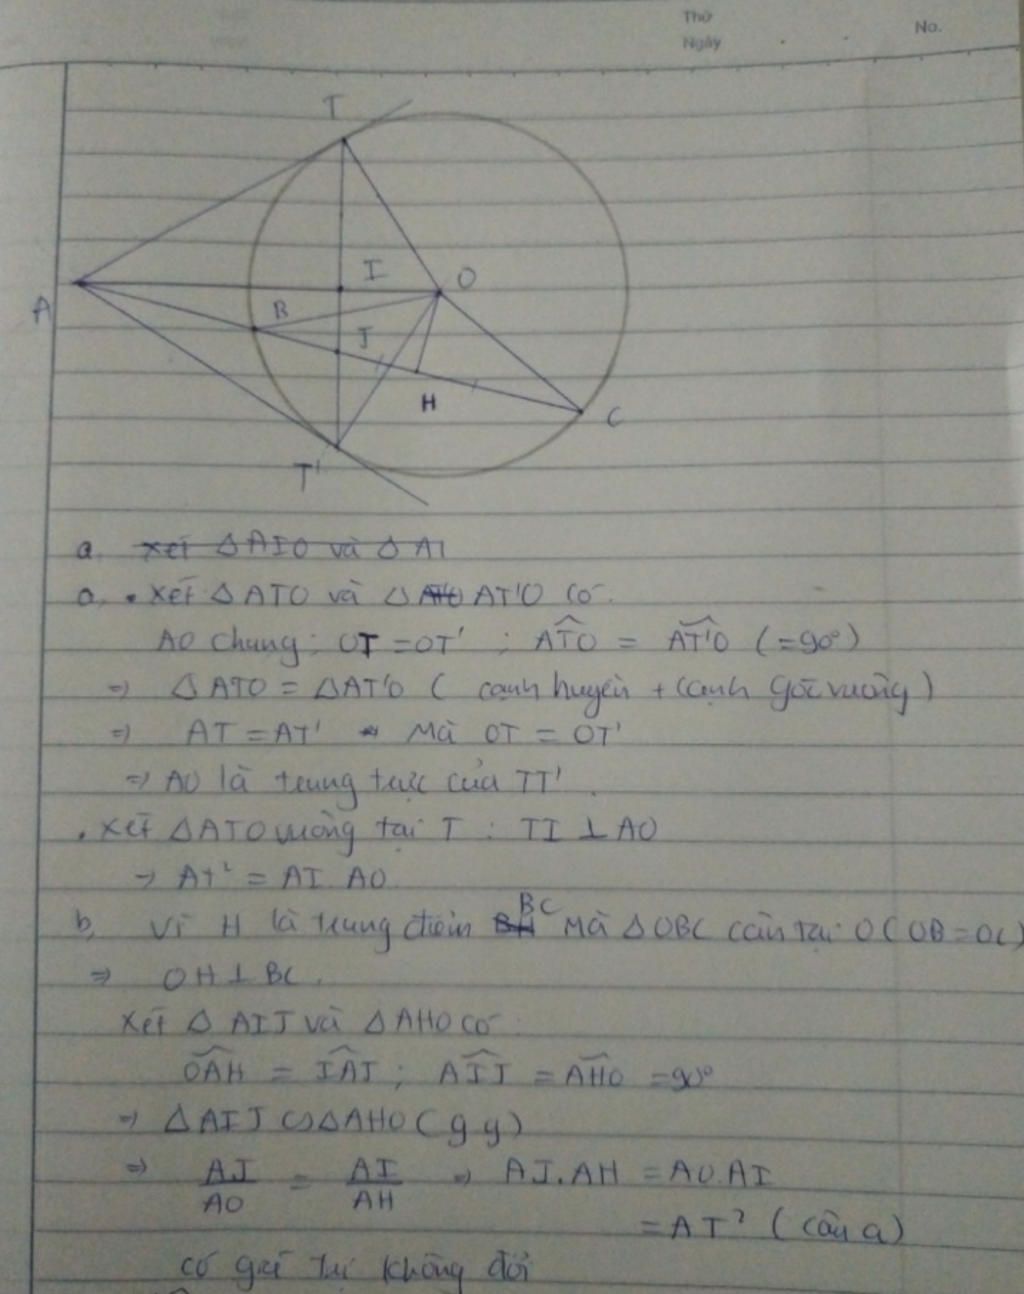 Thứ
Ngày
No.
T
A
I
O
B
J
H
C
T'
a. xét △AIO và △AI
a, . xét △ATO và △ATO AT'O có
AO chung; OT = OT' ; ATO = AT'O (=90°)
=> △ATO = △AT'O ( cạnh huyền + cạnh góc vuông )
=> AT = AT' Mà OT = OT'
=> AO là trung trực của TT'.
. xét △ATO vuông tại T : TI ⊥ AO
-> At² = AI. AO
b, Vì H là trung điểm BH BC Mà △OBC cân tại O (OB=OC)
=> OH ⊥ BC.
Xét △ AIJ và △AHO có
OAH = IAJ ; AIJ = AHO = 90°
=> △AIJ ∽ △AHO ( g g )
=> AJ/AO = AI/AH => AJ.AH = AO.AI
= AT² ( câu a)
có giá trị không đổi